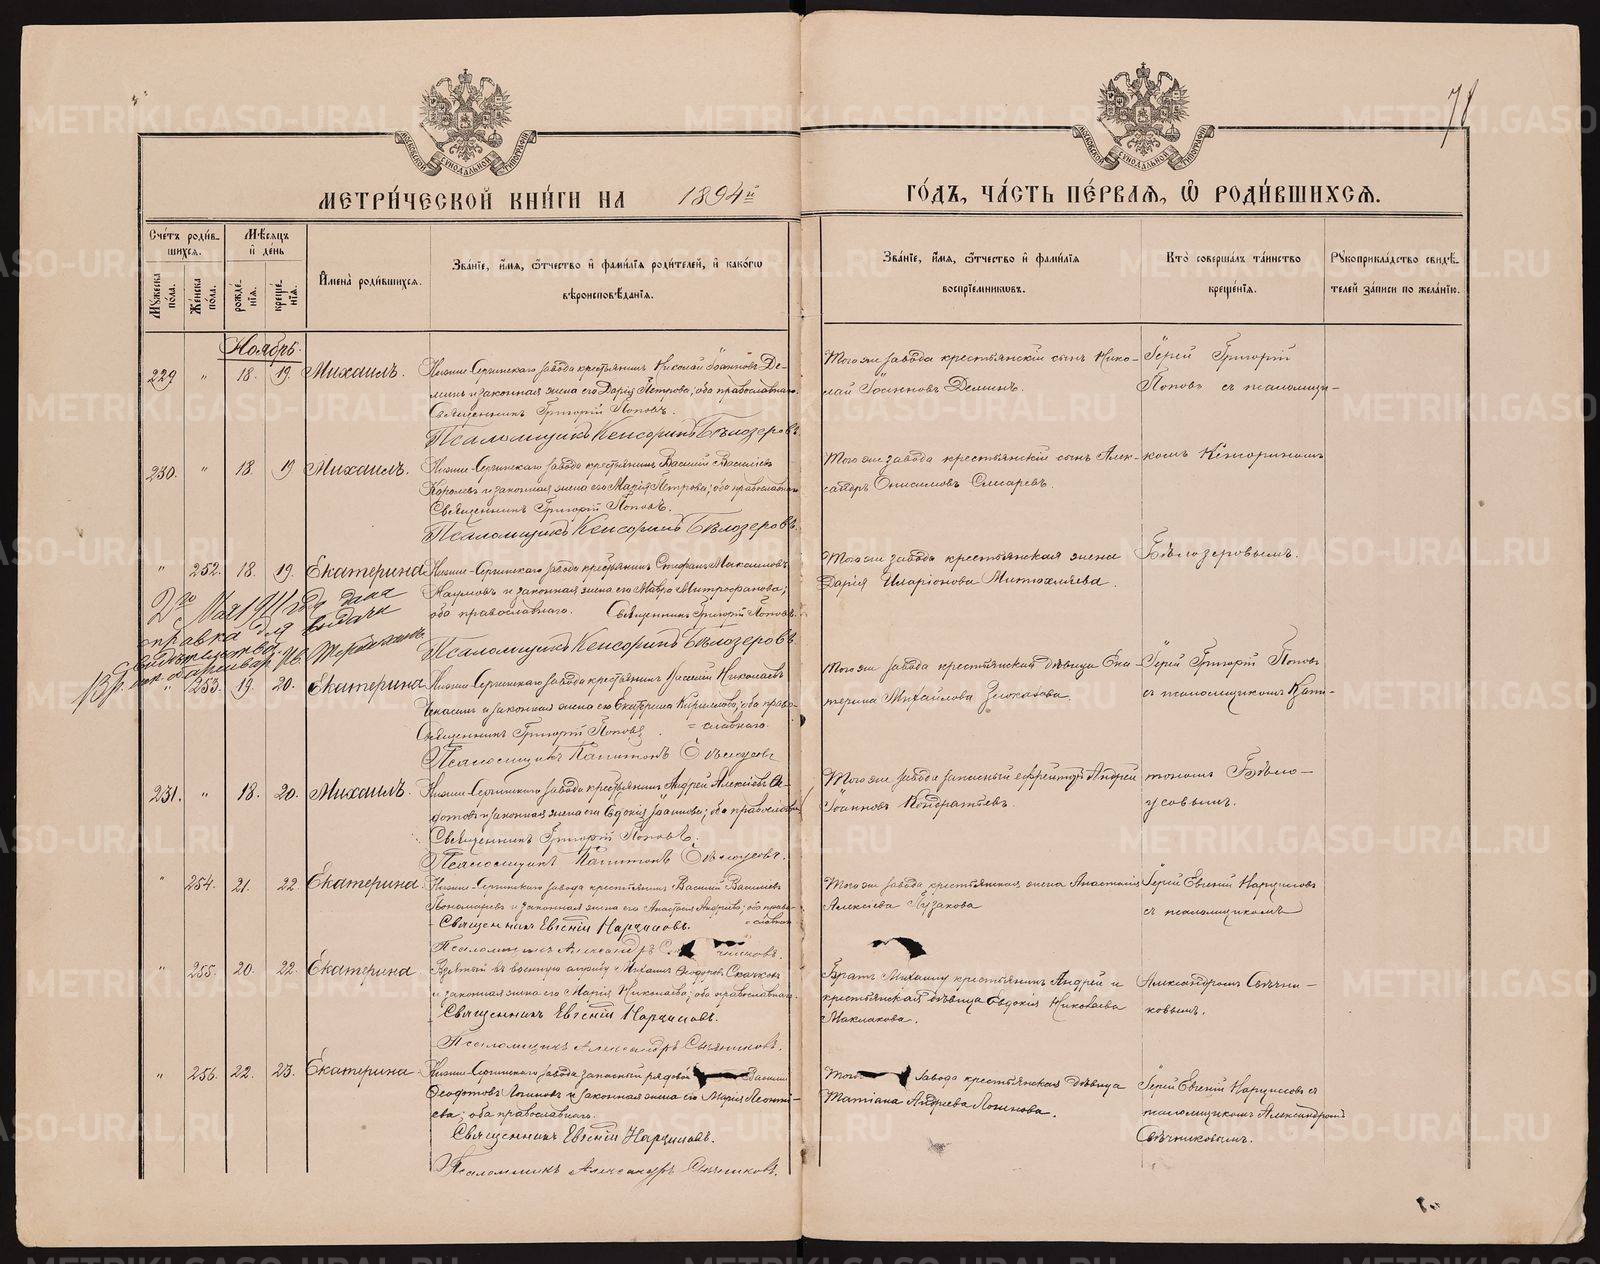 МЕТРИ́ЧЕСКОЙ КНИ́ГИ НА 1894й ГО́ДЪ, ЧА́СТЬ ПЕ́РВАЯ, Ѡ РОДИ́ВШИХСЯ.
Сче́тъ роди́в-
шихся.
Мѣ́сяцъ
и де́нь
Му́жеска по́ла.
Же́нска по́ла.
рожде́-
нія.
креще́-
нія.
Имена̀ роди́вшихся.
Зва́ніе, и́мя, ѻ́тчество и фами́лія роди́телей, и како́гѡ
вѣроисповѣ́данія.
Зва́ніе, и́мя, ѻ́тчество и фами́лія
воспріе́мниковъ.
Кто̀ соверша́лъ та́инство
креще́нія.
Рукоприкла́дство свидѣ́-
телей за́писи по жела́нію.
Ноябрь.
229 " 18. 19. Михаилъ.
Нижне-Сергинскаго завода крестьянинъ Николай Іоанновъ Де-
минъ и законная жена его Дарія Петрова; оба православнаго.
Священникъ Григорій Поповъ.
Псаломщикъ Кенсоринъ Бѣлозеровъ.
Того же завода крестьянскій сынъ Нико-
лай Іоанновъ Деминъ.
Іерей Григорій
Поповъ съ псаломщи-
230. " 18 19 Михаилъ.
Нижне-Сергинскаго завода крестьянинъ Василій Василіевъ
Королевъ и законная жена его Марія Петрова; оба православнаго
Священникъ Григорій Поповъ.
Псаломщикъ Кенсоринъ Бѣлозеровъ.
Того же завода крестьянскій сынъ Алек-
сандръ Онисимовъ
комъ Кенсориномъ
" 252. 18. 19. Екатерина
Нижне-Сергинскаго завода крестьянинъ Стефанъ Максимовъ
Наумовъ и законная жена его Мавра Митрофанова;
оба православнаго. Священникъ Григорій Поповъ.
Псаломщикъ Кенсоринъ Бѣлозеровъ
Того же завода крестьянская жена
Дарія Иларіонова
Бѣлозеровымъ.
2го Мая 1911 года дана
справка для выдачи
" 253. 19. 20. Екатерина
Нижне-Сергинскаго завода крестьянинъ Василій Николаевъ
и законная жена его Екатерина Кириллова; оба право-
Священникъ Григорій Поповъ. =славнаго.
Псаломщикъ Капитонъ Бѣлоусовъ
Того же завода крестьянская дѣвица Ека-
терина Михайлова
Іерей Григорій Поповъ
съ псаломщикомъ Капи-
231. " 18. 20. Михаилъ.
Нижне-Сергинскаго завода крестьянинъ Андрей Алексіевъ Ѳе-
дотовъ и законная жена его Евдокія Іоаннова; оба православн.
Священникъ Григорій Поповъ.
Псаломщикъ Капитонъ Бѣлоусовъ.
Того же завода запасный ефрейторъ Андрей
Іоанновъ Кондратьевъ.
тономъ Бѣло-
усовымъ.
" 254. 21. 22. Екатерина.
Нижне-Сергинскаго завода крестьянинъ Василій Василіевъ
Пономаревъ и законная жена его Анастасія Андреева; оба право-
Священникъ Евгеній Нарциссовъ. =славнаго
Псаломщикъ Александръ
Того же завода крестьянская жена Анастасія
Алексіева Пузакова
Іерей Евгеній Нарциссовъ
съ псаломщикомъ
" 255. 20. 22. Екатерина.
Взятый въ военную службу Михаилъ Ѳеодоровъ Скачковъ
и законная жена его Марія Николаева; оба православнаго.
Священникъ Евгеній Нарциссовъ.
Псаломщикъ Александръ Свѣчниковъ.
Братъ Михаилу крестьянинъ Андрей и
крестьянская дѣвица Евдокія Николаева
Маклакова.
Александромъ Свѣчни-
ковымъ.
" 256. 22. 23. Екатерина.
Нижне-Сергинскаго завода запасный рядовой Василій
Ѳеодотовъ Логиновъ и законная жена его Марія Леонті-
ева; оба православнаго.
Священникъ Евгеній Нарциссовъ.
Псаломщикъ Александръ Свѣчниковъ.
Того завода крестьянская дѣвица
Татіана Андреева Логинова.
Іерей Евгеній Нарциссовъ съ
псаломщикомъ Александромъ
Свѣчниковымъ.
METRIKI.GASO-URAL.RU